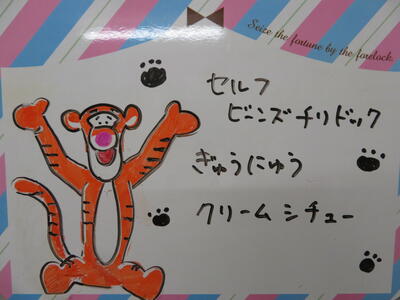 Seize the fortune by the forelock.
セルフ
ビーンズチリドック
ぎゅうにゅう
クリームシチュー